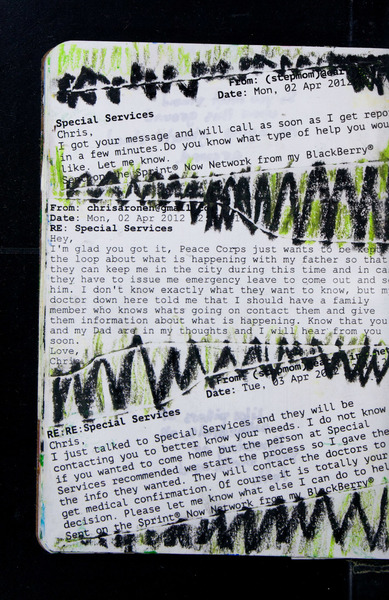 From: (stepmom)@
Date: Mon, 02 Apr 2012
Special Services
Chris,
I got your message and will call as soon as I get
in a few minutes.Do you know what type of help you
like. Let me know.
Sent on the Sprint® Now Network from my BlackBerry®
From: chrisaroneh@gmail
Date: Mon, 02 Apr 2012
RE: Special Services
Hey,
I'm glad you got it, Peace Corps just wants to be kept
the loop about what is happening with my father so that
they can keep me in the city during this time and in
they have to issue me emergency leave to come out and
him. I don't know exactly what they want to know, but
doctor down here told me that I should have a family
member who knows whats going on contact them and give
them information about what is happening. Know that you
and my Dad are in my thoughts and I will hear from you
soon.
Love,
Chris
From: (stepmom)
Date: Tue, 03 Apr
RE:RE:Special Services
Chris,
I just talked to Special Services and they will be
contacting you to better know your needs. I do not know
if you wanted to come home but the person at Special
Services recommended we start the process so I gave the
the info they wanted. They will contact the doctors to
get medical confirmation. Of course it is totally your
decision. Please let me know what else I can do to
Sent on the Sprint® Now Network from my BlackBerry®